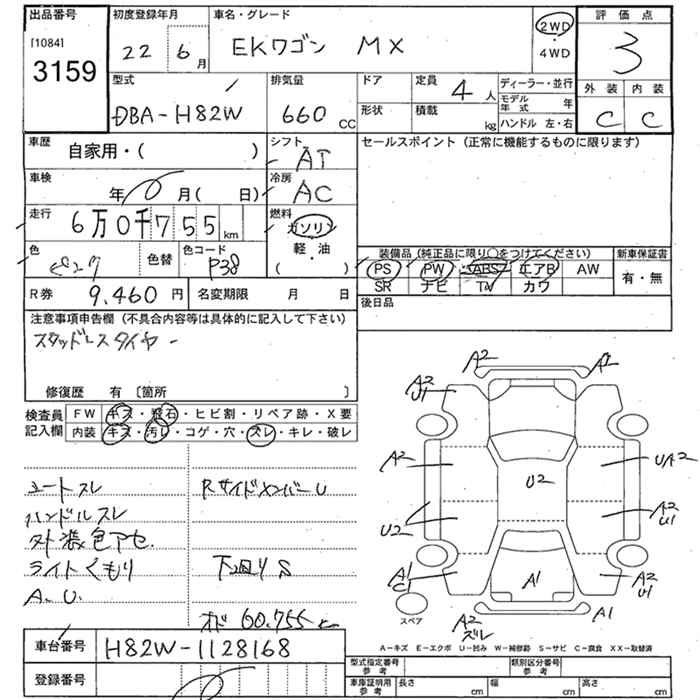 出品番号
[1084]
3159
初度登録年月
22 6月
車名・グレード
EKワゴン MX
2WD
・4WD
評価点
3
外装 内装
C C
型式
DBA-H82W
排気量
660 CC
ドア
形状
定員 4人
積載 kg
ディーラー・並行
モデル年式 年
ハンドル 左・右
車歴
自家用・( )
シフト
AT
セールスポイント (正常に機能するものに限ります)
車検
年 月( 日)
冷房
AC
走行
6万0千755km
燃料
ガソリン
軽・油
( )
色
ピンク
色替
色コード
P38
装備品 (純正品に限り○をつけてください)
PS PW ABS エアB AW
SR ナビ TV カワ
新車保証書
有・無
R券 9,460円
名変期限 月 日
後日品
注意事項申告欄 (不具合内容等は具体的に記入して下さい)
スタッドレスタイヤー
修復歴 有 [箇所 ]
検査員記入欄
FW キズ・飛石・ヒビ割・リペア跡・X要
内装 キズ・汚レ・コゲ・穴・スレ・キレ・破レ
シートスレ
ハンドルスレ
外装色アセ
ライトくもり
A.U.
RサイドメンバーU
下回りS
オド 60.755㎞
A2 A2
A2 U1
A2
A2
UA2
U2
U2
A2 U1
A1 C1
A1
A2 U1
A2 ズレ
A1
スペア
A-キズ E-エクボ U-凹み W-補修跡 S-サビ C-腐食 XX-取替済
車台番号
H82W-1128168
登録番号
型式指定番号 参考
類別区分番号 参考
車庫証明用 参考
長さ cm
幅 cm
高さ cm